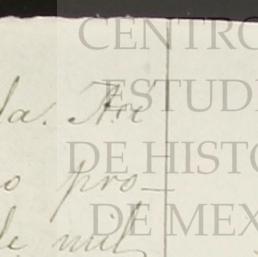 CENTRO
ESTUDI
DE HISTO
DE MEX
da. Ari
o pro-
de mil